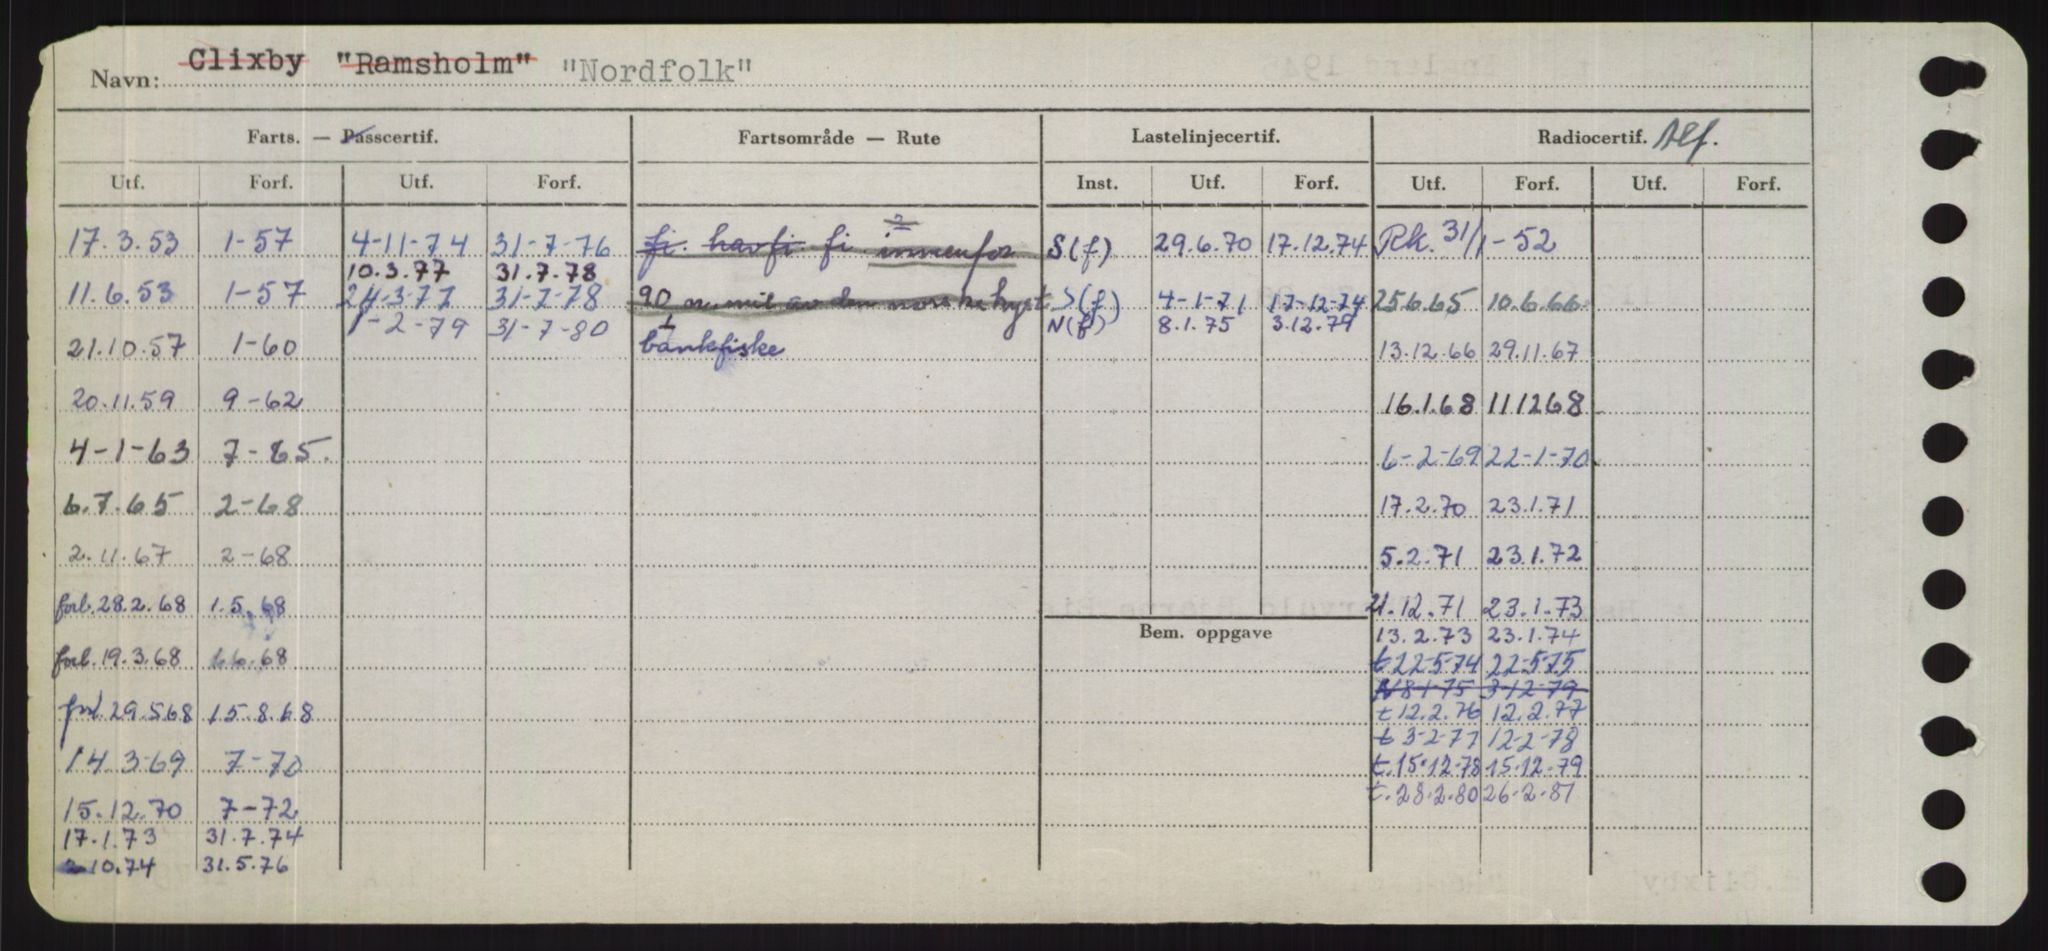 Navn: Clixby "Ramsholm" "Nordfolk"
Farts. — Passcertif. Fartsområde — Rute Lastelinjecertif. Radiocertif. Alf.
Utf. Forf. Utf. Forf. Inst. Utf. Forf. Utf. Forf. Utf. Forf.
17.3.53 1-57 4-11-74 31-7-76 fi. havfi. fi innenfor S(f) 29.6.70 17.12.74 Rk. 31/1-52
10.3.77 31.7.78
11.6.53 1-57 24-3-77 31-7-78 90 n. mil av den norske kyst S(f) 4-1-71 17-12-74 25.6.65 10.6.66
1-2-79 31-7-80 N(f) 8.1.75 3.12.79
21.10.57 1-60 bankfiske 13.12.66 29.11.67
20.11.59 9-62 16.1.68 11.12.68
4-1-63 7-65. 6-2-69 22-1-70
6.7.65 2-68 17.2.70 23.1.71
2.11.67 2-68 5.2.71 23.1.72
forl. 28.2.68 1.5.68 21.12.71 23.1.73
Bem. oppgave 13.2.73 23.1.74
forl. 19.3.68 1.6.68 t. 22-5-74 22-5-75
N 8-1-75 3-12-79
forl. 29.5.68 15.8.68 t 12.2.76 12.2.77
t 3-2-77 12-2-78
14.3.69 7-70 t. 15.12.78 15.12.79
t. 28.2.80 26.2.81
15.12.70 7-72
17.1.73 31.7.74
10.74 31.5.76